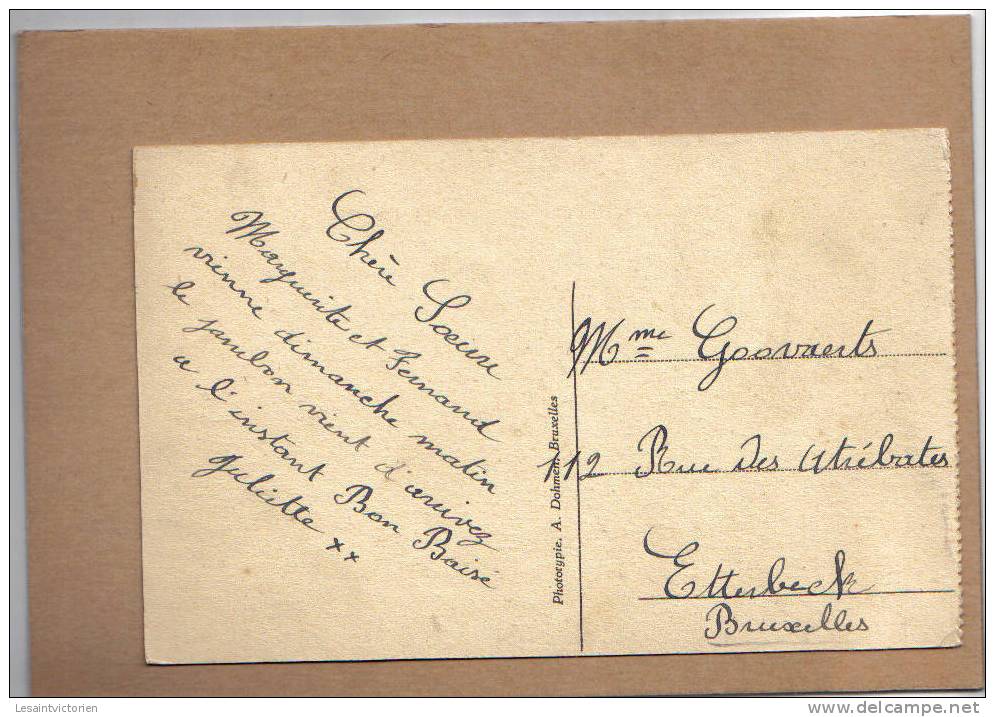 Chère Soeure
Marguerite et Fernand
vienne dimanche matin
le jambon vient d'arrivez
a l'instant Bon Baisé
Juliette xx
Phototypie. A. Dohmen. Bruxelles
Mme Goovaerts
112 Rue des Atrébates
Etterbeek
Bruxelles
Lesaintvictorien
delcampe.net